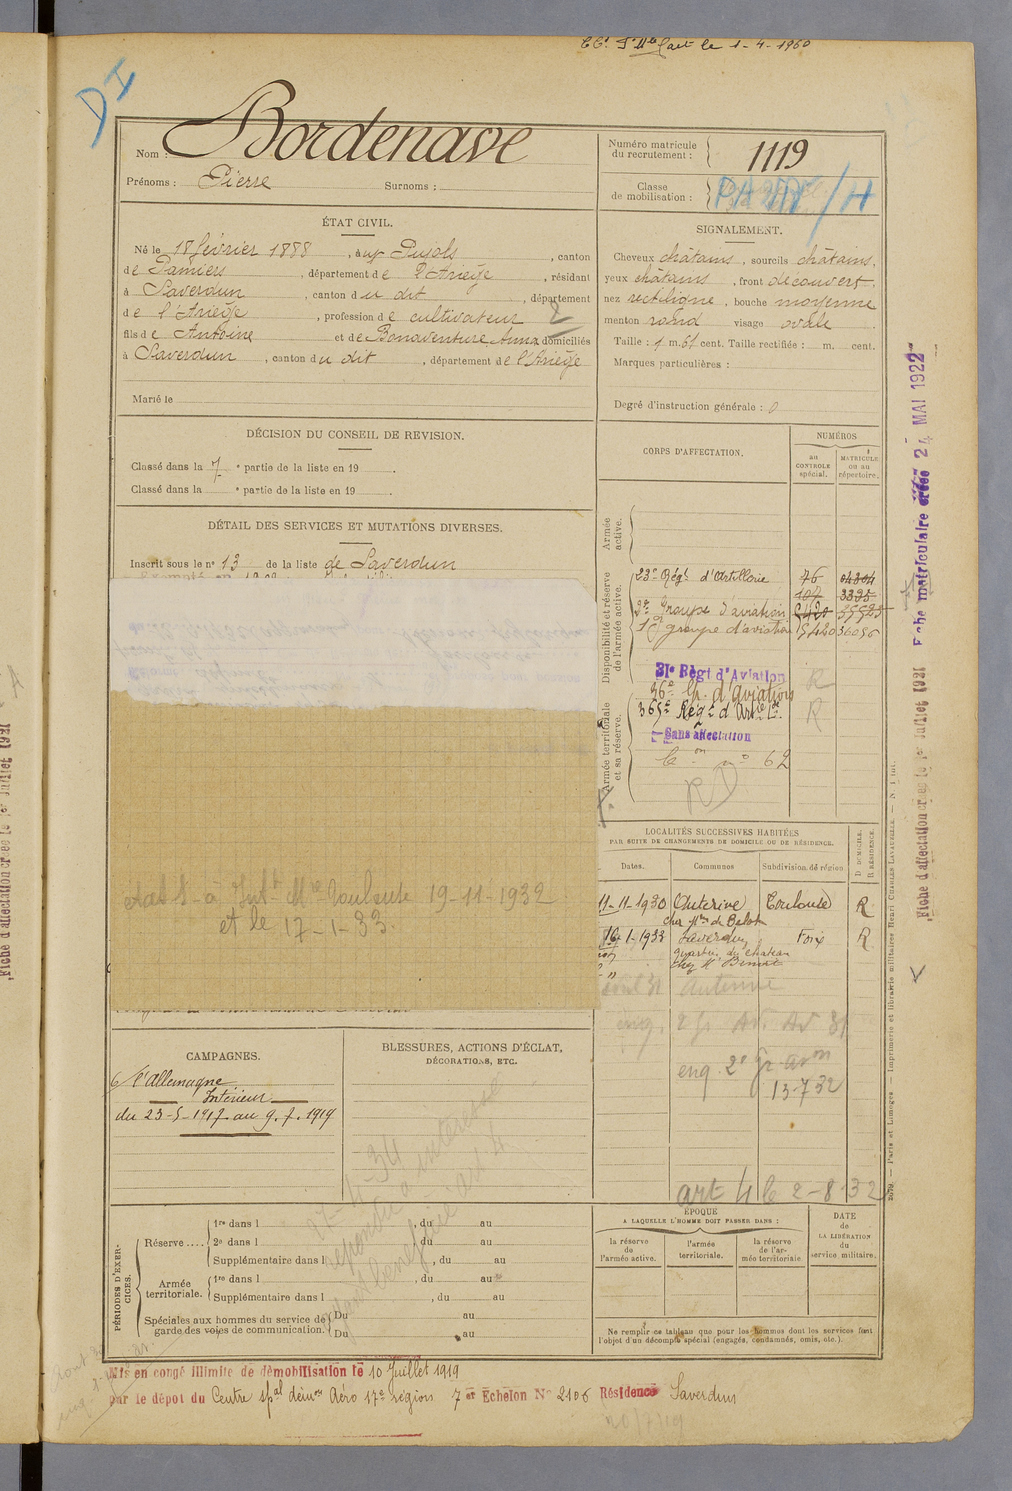 le 1-4-1960
DI
Nom : Bordenave
Prénoms : Pierre Surnoms :
Numéro matricule du recrutement : 1119
Classe de mobilisation :
ÉTAT CIVIL.
Né le 18 février 1888, aux Pujols, canton
de Pamiers, département de l'Ariège, résidant
à Saverdun, canton du dit, département
de l'Ariège, profession de cultivateur
fils de Antoine et de Bonaventure Anna domiciliés
à Saverdun, canton du dit, département de l'Ariège
Marié le
SIGNALEMENT.
Cheveux châtains, sourcils châtains,
yeux châtains, front découvert,
nez rectiligne, bouche moyenne
menton rond visage ovale
Taille : 1 m. 61 cent. Taille rectifiée : m. cent.
Marques particulières :
Degré d'instruction générale :
DÉCISION DU CONSEIL DE REVISION.
Classé dans la 7e partie de la liste en 19
Classé dans la e partie de la liste en 19
DÉTAIL DES SERVICES ET MUTATIONS DIVERSES.
Inscrit sous le no 13 de la liste de Saverdun
CORPS D'AFFECTATION.
NUMÉROS
au CONTROLE spécial.
MATRICULE ou au répertoire.
Armée active.
Disponibilité et réserve de l'armée active.
23e Régt d'Artillerie 76
107 3395
2e Groupe d'aviation 5420 35523
1er groupe d'aviation 5420 36056
31e Régt d'Aviation R
36e Gr. d'aviation
Armée territoriale et sa réserve.
365e Régt d'Artie R
Sans affectation
62
RD
LOCALITÉS SUCCESSIVES HABITÉES
PAR SUITE DE CHANGEMENTS DE DOMICILE OU DE RÉSIDENCE.
Dates. Communes Subdivision de région D DOMICILE. R RÉSIDENCE.
11-11-1930 Auterive Toulouse R
chez Mme de Belot
16-1-1933 Saverdun Foix R
quartier du chateau
chez Mr
Auterive
enq. 2e gr avon
13-7-32
art 4 le 2-8-32
à Intce Mre Toulouse 19-11-1932
et le 17-1-33.
CAMPAGNES.
c/ l'Allemagne
Intérieur
du 23-5-1917 au 9.7.1919
BLESSURES, ACTIONS D'ÉCLAT,
DÉCORATIONS, ETC.
PÉRIODES D'EXERCICES.
Réserve....
1re dans l , du au
2e dans l , du au
Supplémentaire dans l , du au
Armée territoriale.
1re dans l , du au
Supplémentaire dans l , du au
Spéciales aux hommes du service de garde des voies de communication.
Du au
Du au
ÉPOQUE
A LAQUELLE L'HOMME DOIT PASSER DANS :
la réserve de l'armée active.
l'armée territoriale.
la réserve de l'armée territoriale
DATE de LA LIBÉRATION du service militaire.
Ne remplir ce tableau que pour les hommes dont les services font
l'objet d'un décompte spécial (engagés, condamnés, omis, etc.).
Mis en congé illimité de démobilisation le 10 Juillet 1919
par le dépôt du Centre spal démon Aéro 17e région 7er Echelon No 2106 Résidence Saverdun
Fiche matriculaire créée 24 MAI 1922
Fiche d'affectation créée le 1er Juillet 1921
Paris et Limoges — Imprimerie et librairie militaires Henri CHARLES-LAVAUZELLE.
Fiche d'affectation créée le 1er Juillet 1921